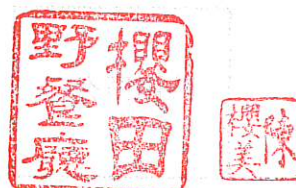 櫻田
野餐廳
陳
櫻美